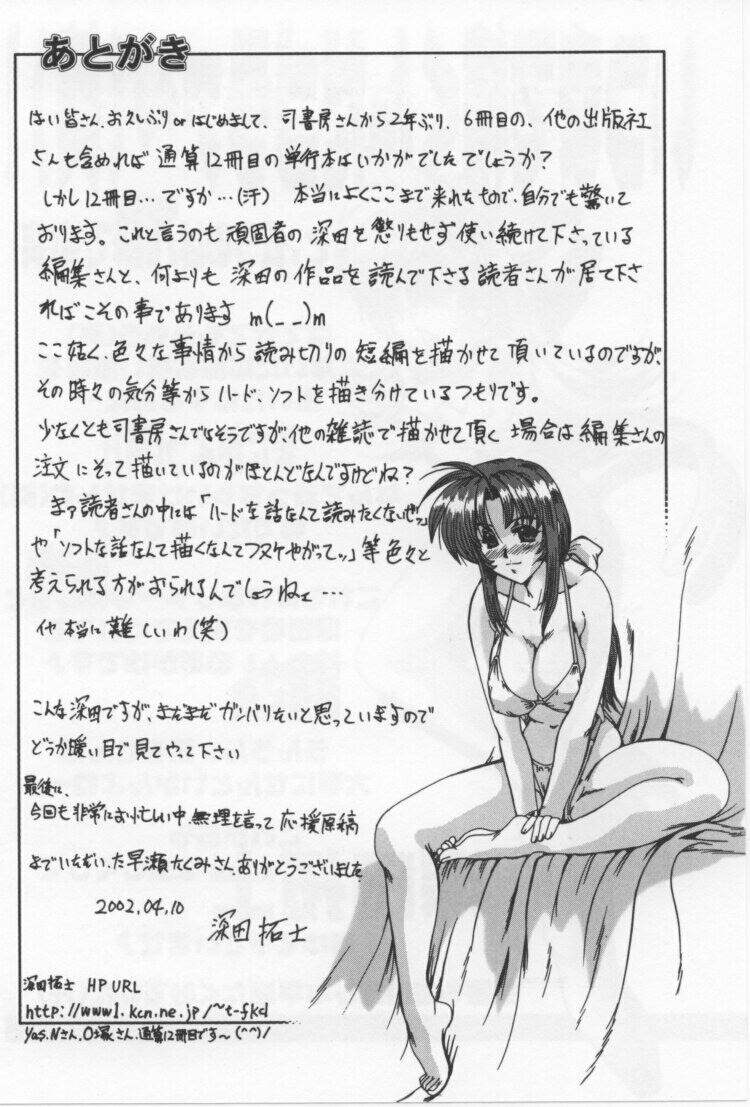 あとがき
はい皆さん、お久しぶりorはじめまして、司書房さんから2年ぶり、6冊目の、他の出版社
さんも含めれば通算12冊目の単行本はいかがでしたでしょうか？
しかし12冊目…ですか…(汗) 本当によくここまで来れたもので、自分でも驚いて
おります。これと言うのも頑固者の深田を懲りもせず使い続けて下さっている
編集さんと、何よりも深田の作品を読んで下さる読者さんが居て下さ
ればこその事であります m(_ _)m
ここ姑く、色々な事情から読み切りの短編を描かせて頂いているのですが、
その時々の気分等からハード、ソフトを描き分けているつもりです。
少なくとも司書房さんではそうですが、他の雑誌で描かせて頂く場合は編集さんの
注文にそって描いているのがほとんどなんですけどね？
まァ読者さんの中には「ハードな話なんて読みたくないぜッ」
や「ソフトな話なんて描くなんてフヌケやがってッ」等色々と
考えられる方がおられるんでしょうねェ…
イヤ本当に難しいわ(笑)
こんな深田ですが、まだまだガンバりたいと思っていますので
どうか暖い目で見てやって下さい
最後に、
今回も非常にお忙しい中、無理を言って応援原稿
までいただいた早瀬たくみさん、ありがとうございました
2002.04.10
深田拓士
深田拓士 HP URL
http://www1.kcn.ne.jp/~t-fkd
Yas.Nさん、O塚さん、通算12冊目です〜(^^)/